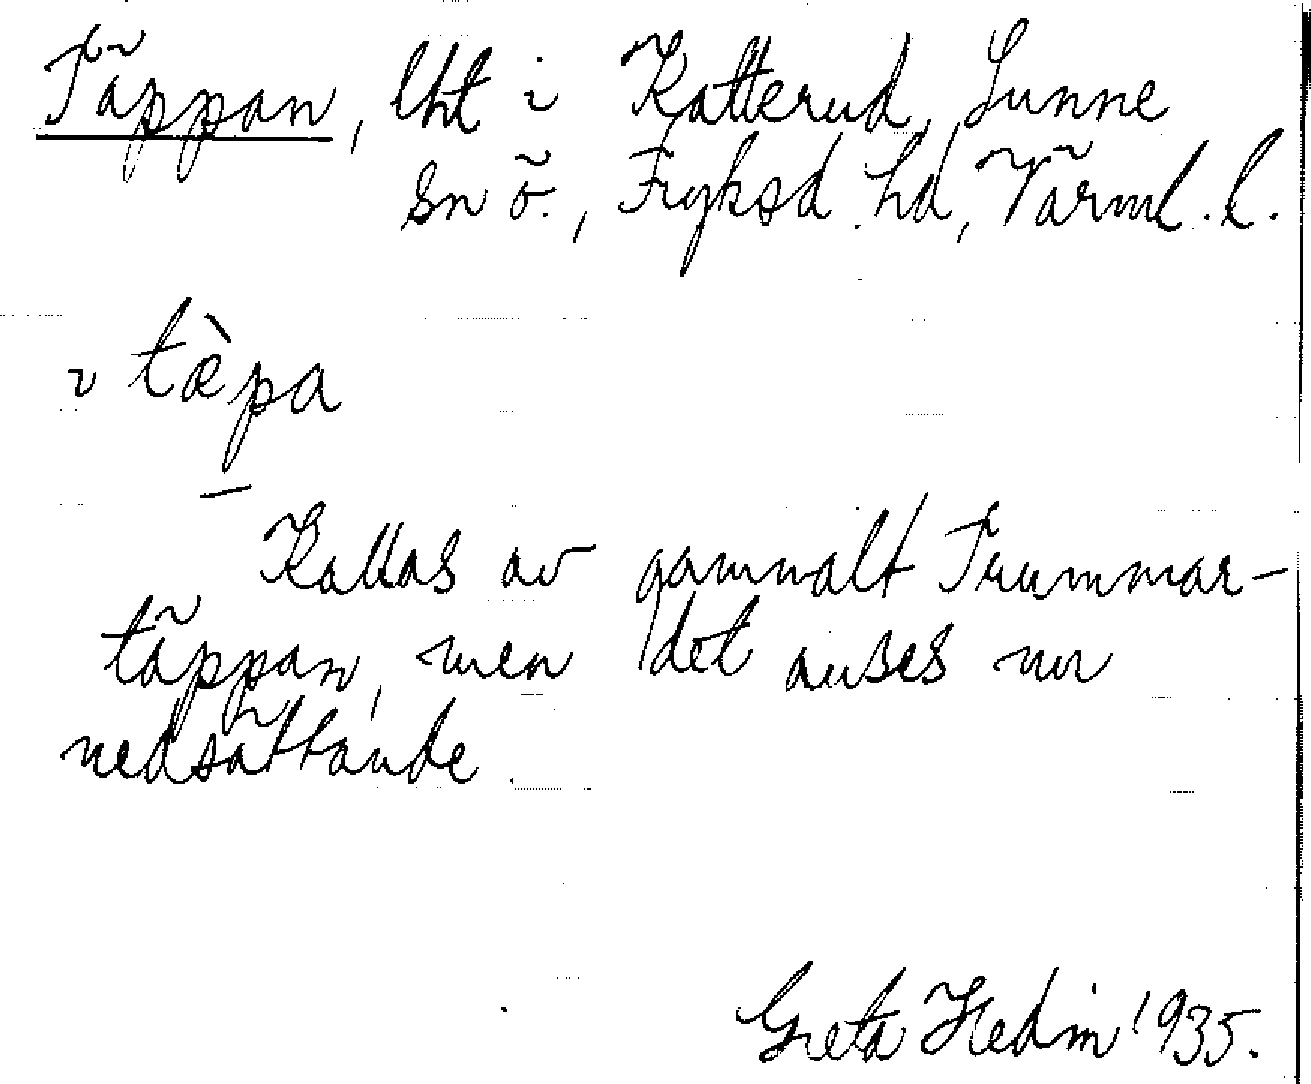 Täppan, lht i Katterud, Sunne
sn ö., Fryksd. hd, Värml. l.
i tæ̀pa
—
Kallas av gammalt Trummar-
täppan, men det anses nu
nedsättande.
Greta Hedin 1935.